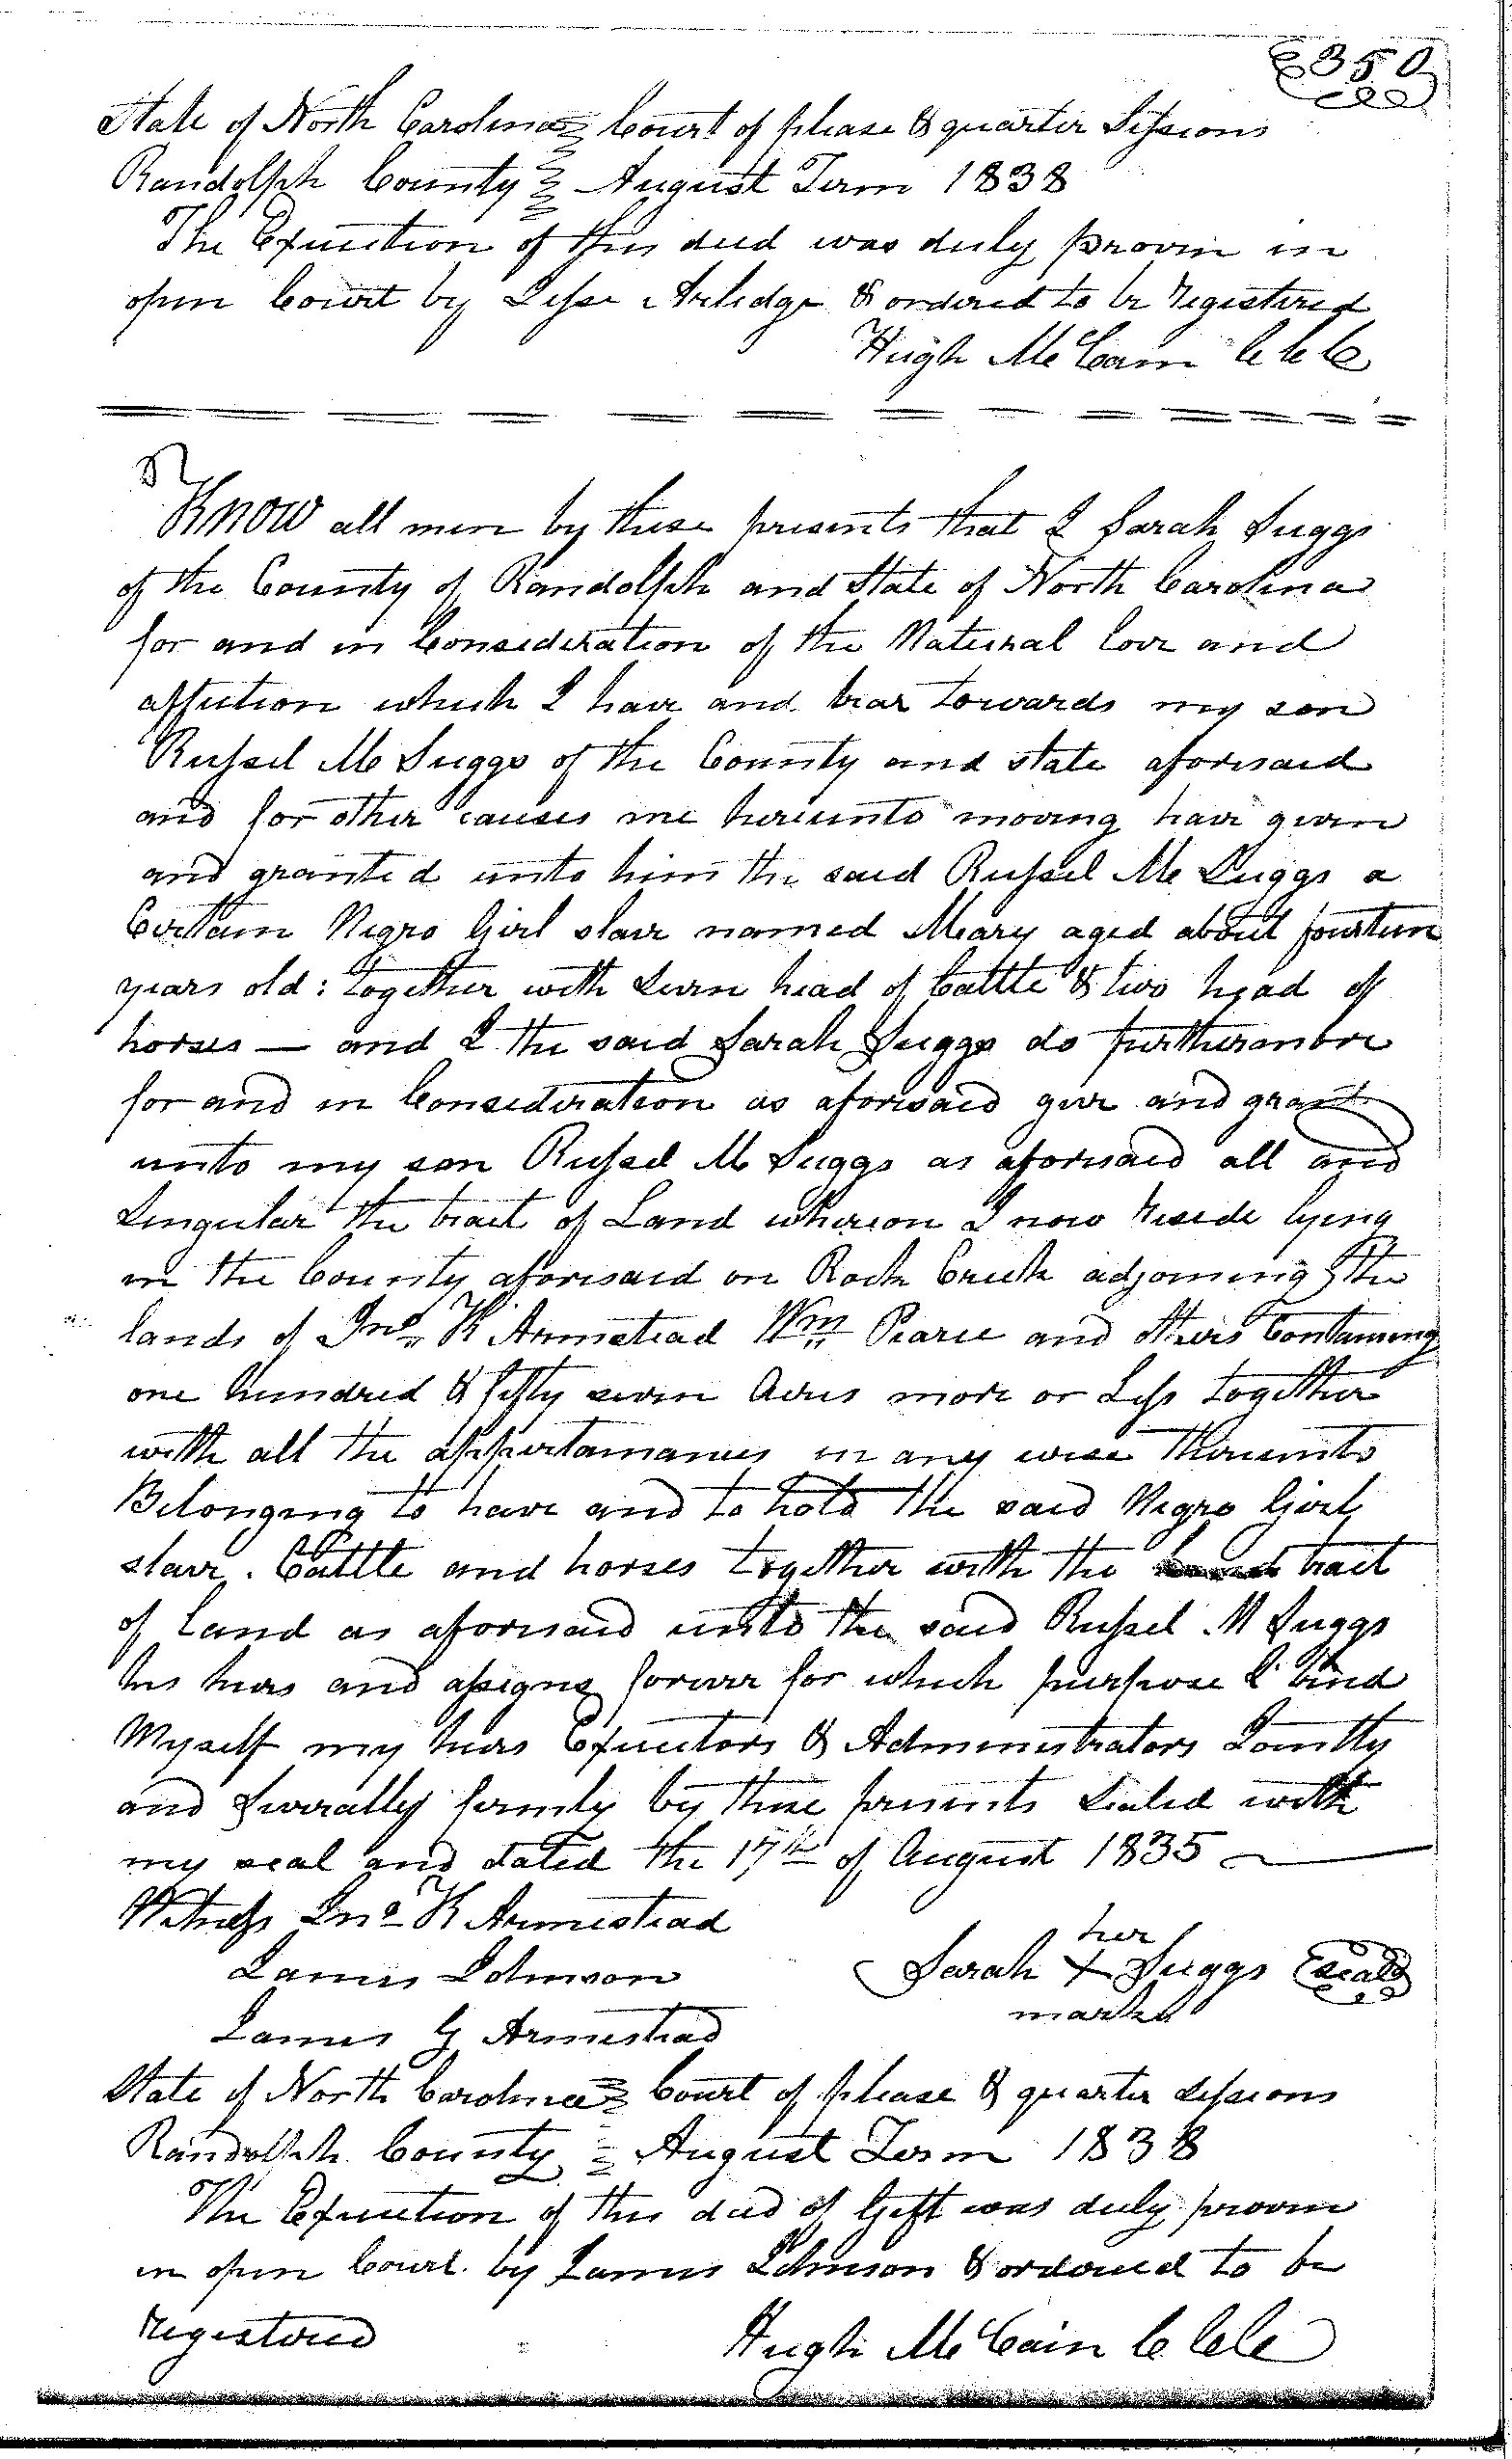 350
State of North Carolina Court of please & quarter Sessions
Randolph County August Term 1838
The Execution of this deed was duly proven in
open Court by Jesse Arledge & ordered to be registered
Hugh McCain C C C
Know all men by these presents that I Sarah Suggs
of the County of Randolph and State of North Carolina
for and in Consideration of the Natural love and
affection which I have and bear towards my son
Russel M Suggs of the County and state aforesaid
and for other causes me hereunto moving have given
and granted unto him the said Russel M Suggs a
Certain Negro Girl slave named Meary aged about fourteen
years old: together with seven head of Cattle & two head of
horses — and I the said Sarah Suggs do furthermore
for and in Consideration as aforesaid give and grant
unto my son Russel M Suggs as aforesaid all and
Singular the tract of Land whereon I now reside lying
in the County aforesaid on Rock Creek adjoining the
lands of Jno. K Armistead Wm Pearce and others Containing
one hundred & fifty seven Acres more or Less together
with all the appertainances in any wise thereunto
Belonging to have and to hold the said Negro Girl
slave. Cattle and horses together with the tract
of Land as aforesaid unto the said Russel M Suggs
his heirs and assigns forever for which purpose I bind
Myself my heirs Executors & Administrators Jointly
and Severally firmly by these presents Sealed with
my seal and dated the 17th of August 1835
Witness Jno K Armistead
her
James Johnson Sarah X Suggs seal
mark
James G Armistead
State of North Carolina Court of please & quarter sessions
Randolph County August Term 1838
The Execution of this deed of Gift was duly proven
in open Court by James Johnson & ordered to be
registered Hugh McCain C C C